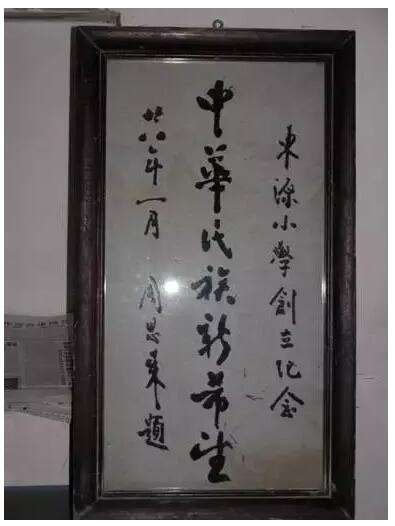 東源小學創立纪念
中華民族新希望
廿八年一月 周恩来題